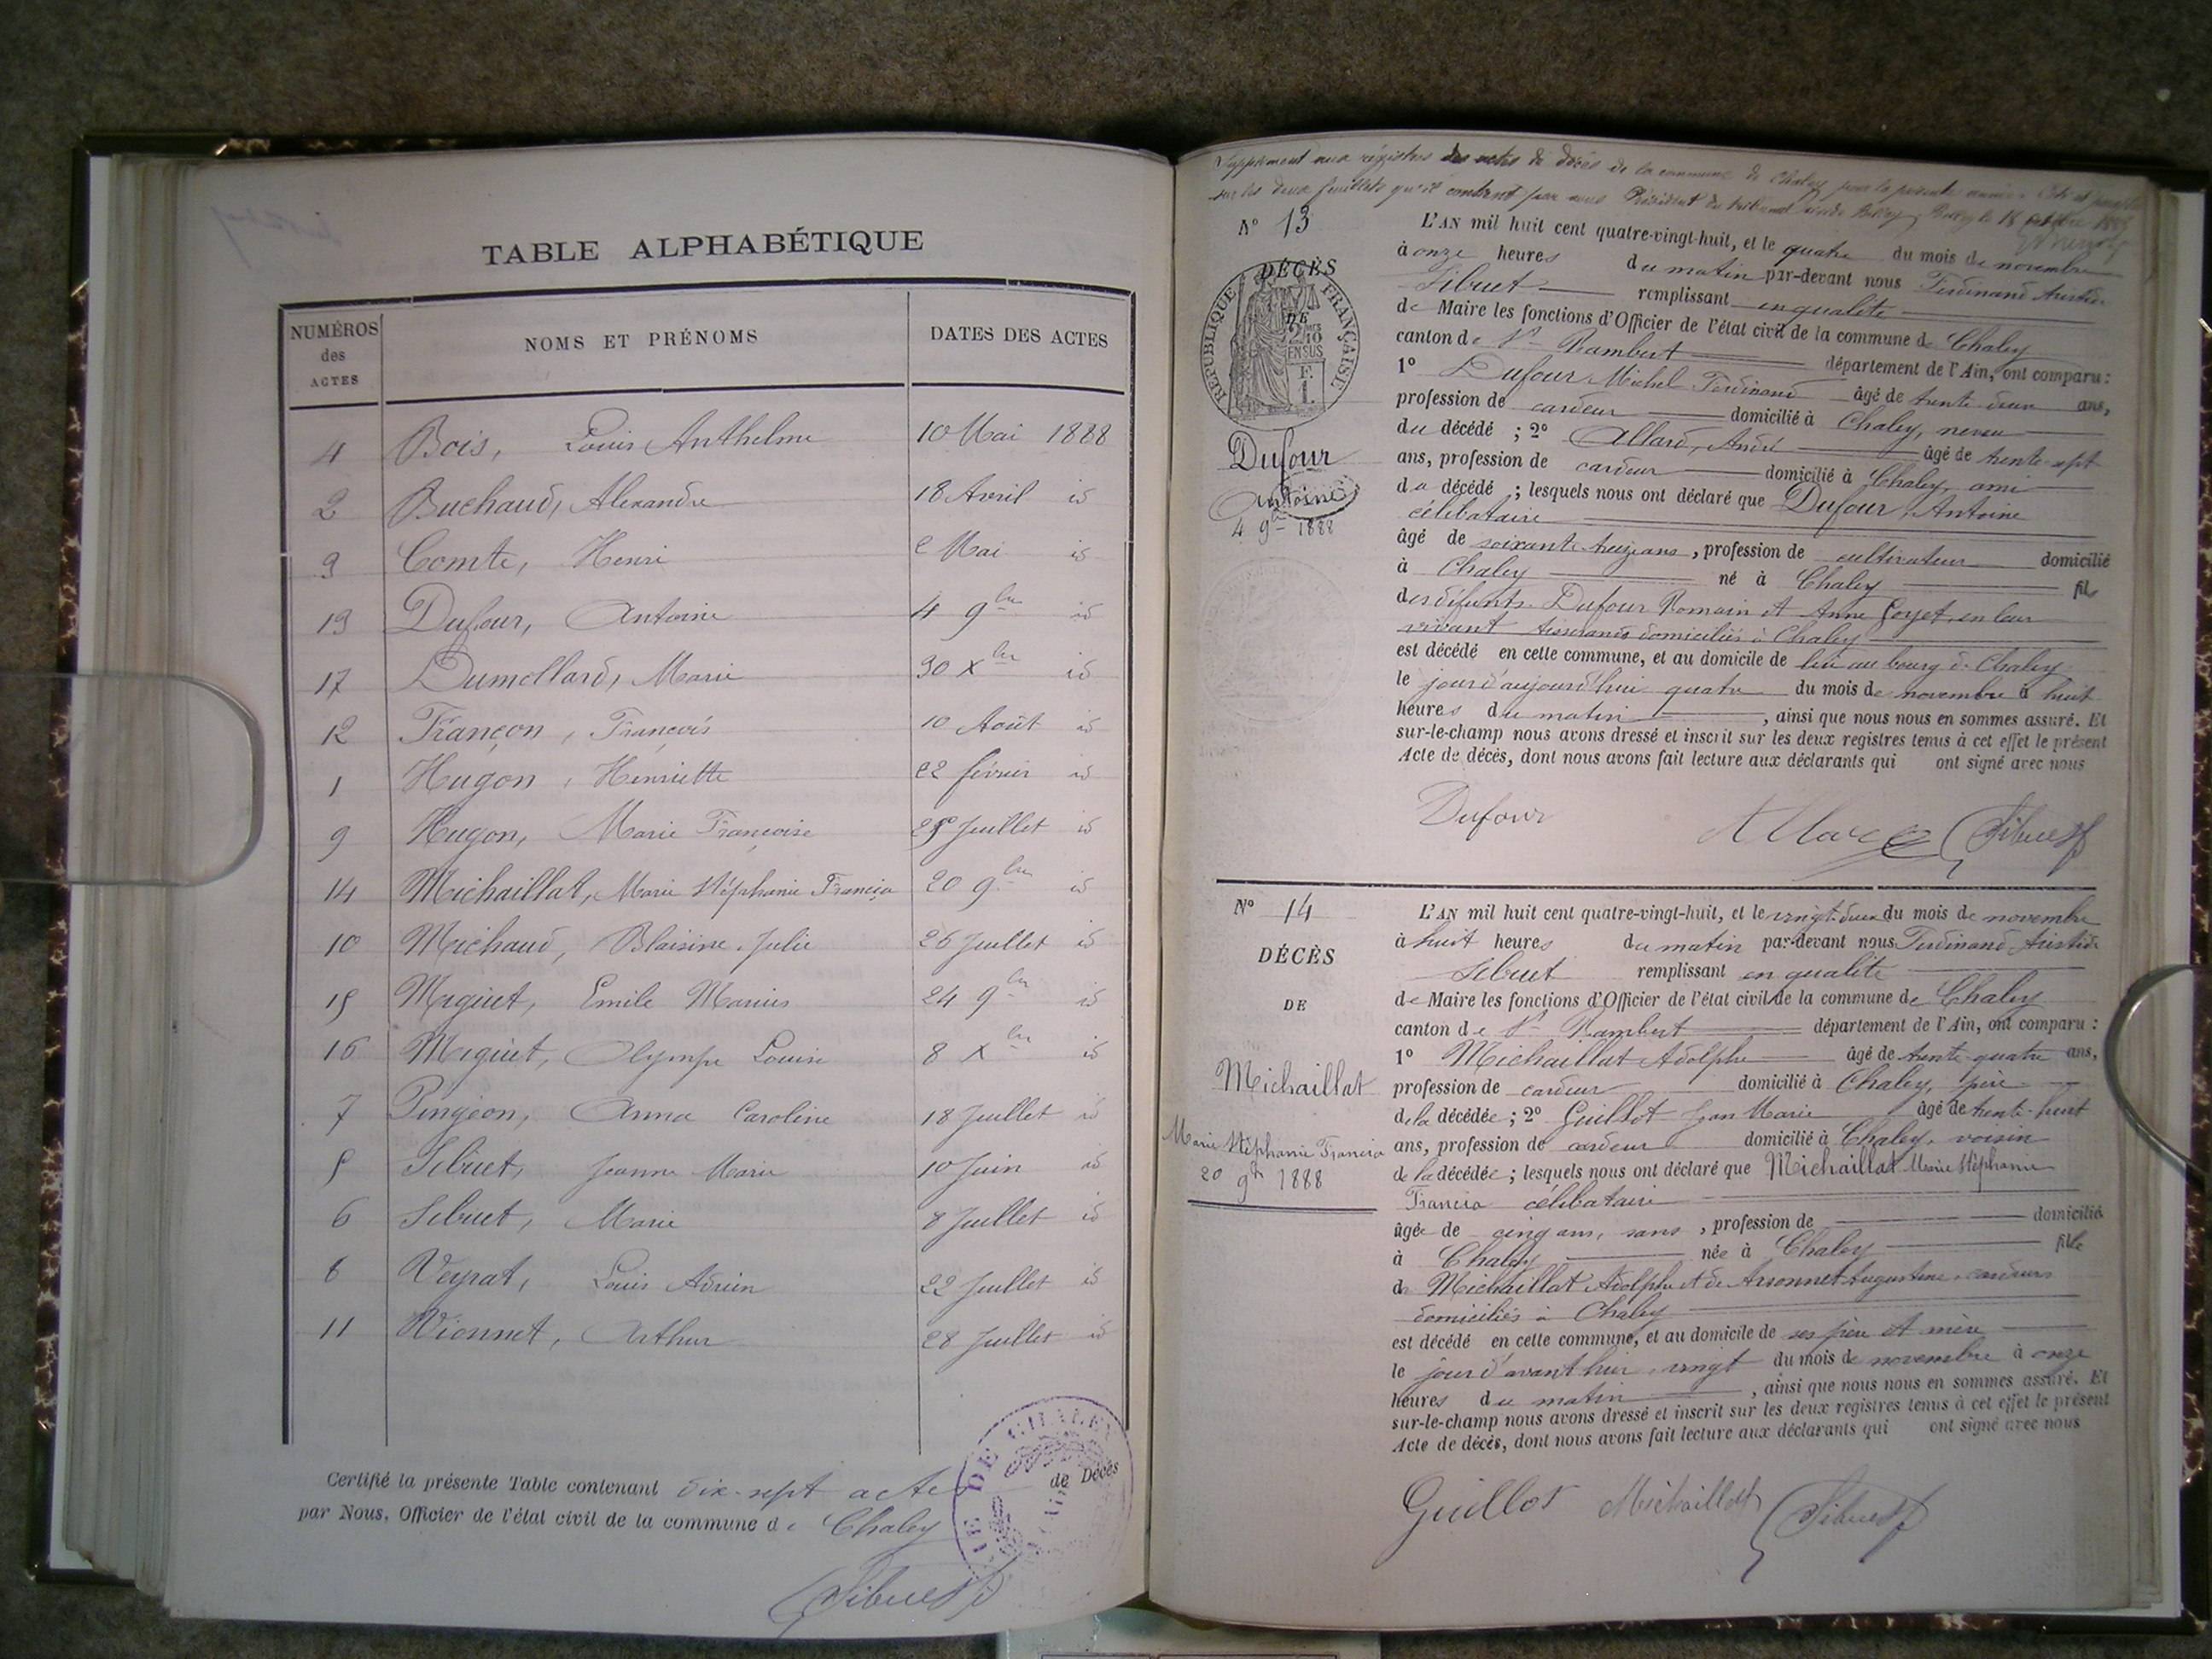 TABLE ALPHABÉTIQUE
NUMÉROS des ACTES
NOMS ET PRÉNOMS
DATES DES ACTES
4 Bois, Louis Anthelme 10 Mai 1888
2 Buchaud, Alexandre 18 Avril id
3 Comte, Henri 2 Mai id
13 Dufour, Antoine 4 9bre id
17 Dumollard, Marie 30 Xbre id
12 Françon, François 10 Août id
1 Hugon, Henriette 22 février id
9 Hugon, Marie Françoise Juillet id
14 Michaillat, Marie Stéphanie Francia 20 9bre id
10 Michaud, Blaisine Julie 26 Juillet id
15 Miguet, Emile Marius 24 9bre id
16 Miguet, Olympe Louise 8 Xbre id
7 Pingeon, Anna Caroline 18 Juillet id
5 Sibuet, Jeanne Marie 10 Juin id
6 Sibuet, Marie 8 Juillet id
8 Veyrat, Louis Adrien 22 Juillet id
11 Vionnet, Arthur 28 Juillet id
Certifié la présente Table contenant dix-sept actes de Décès
par Nous, Officier de l'état civil de la commune de Chaley
Sibuet
Supplément aux régistres des actes de décès de la commune de Chaley pour la présente année. Coté et paraphé
sur les deux feuillets qu'il contient par nous Président du tribunal civil de Belley, Belley le 18 octobre 1888
N° 13
DÉCÈS
DE
RÉPUBLIQUE FRANÇAISE
2/10 EN SUS
F. 1.
Dufour
Antoine
4 9bre 1888
L'AN mil huit cent quatre-vingt-huit, et le quatre du mois de novembre
à onze heures du matin par-devant nous Ferdinand Aristide
Sibuet remplissant en qualité
de Maire les fonctions d'Officier de l'état civil de la commune de Chaley
canton de St Rambert département de l'Ain, ont comparu :
1° Dufour Michel Ferdinand âgé de trente deux ans,
profession de cardeur domicilié à Chaley, neveu
du décédé ; 2° Allard, André âgé de trente-sept
ans, profession de cardeur domicilié à Chaley, ami
du décédé ; lesquels nous ont déclaré que Dufour, Antoine
célibataire
âgé de soixante treize ans, profession de cultivateur domicilié
à Chaley né à Chaley fils
des défunts Dufour Romain et Anne Goyet, en leur
vivant tisserands domiciliés à Chaley
est décédé en cette commune, et au domicile de lui au bourg de Chaley
le jour d'aujourd'hui quatre du mois de novembre à huit
heures du matin, ainsi que nous nous en sommes assuré. Et
sur-le-champ nous avons dressé et inscrit sur les deux registres tenus à cet effet le présent
Acte de décès, dont nous avons fait lecture aux déclarants qui ont signé avec nous
Dufour Allard Sibuet
N° 14
DÉCÈS
DE
Michaillat
Marie Stéphanie Francia
20 9bre 1888
L'AN mil huit cent quatre-vingt-huit, et le vingt-deux du mois de novembre
à huit heures du matin par-devant nous Ferdinand Aristide
Sibuet remplissant en qualité
de Maire les fonctions d'Officier de l'état civil de la commune de Chaley
canton de St Rambert département de l'Ain, ont comparu :
1° Michaillat Adolphe âgé de trente-quatre ans,
profession de cardeur domicilié à Chaley, père
de la décédée ; 2° Guillot Jean Marie âgé de trente-huit
ans, profession de cardeur domicilié à Chaley, voisin
de la décédée ; lesquels nous ont déclaré que Michaillat Marie Stéphanie
Francia célibataire
âgée de cinq ans, sans, profession de domicilié
à Chaley née à Chaley fille
de Michaillat Adolphe et de Augustine, cardeurs
domiciliés à Chaley
est décédé en cette commune, et au domicile de ses père et mère
le jour d'avant hier, vingt du mois de novembre à onze
heures du matin, ainsi que nous nous en sommes assuré. Et
sur-le-champ nous avons dressé et inscrit sur les deux registres tenus à cet effet le présent
Acte de décès, dont nous avons fait lecture aux déclarants qui ont signé avec nous
Guillot Michaillat Sibuet